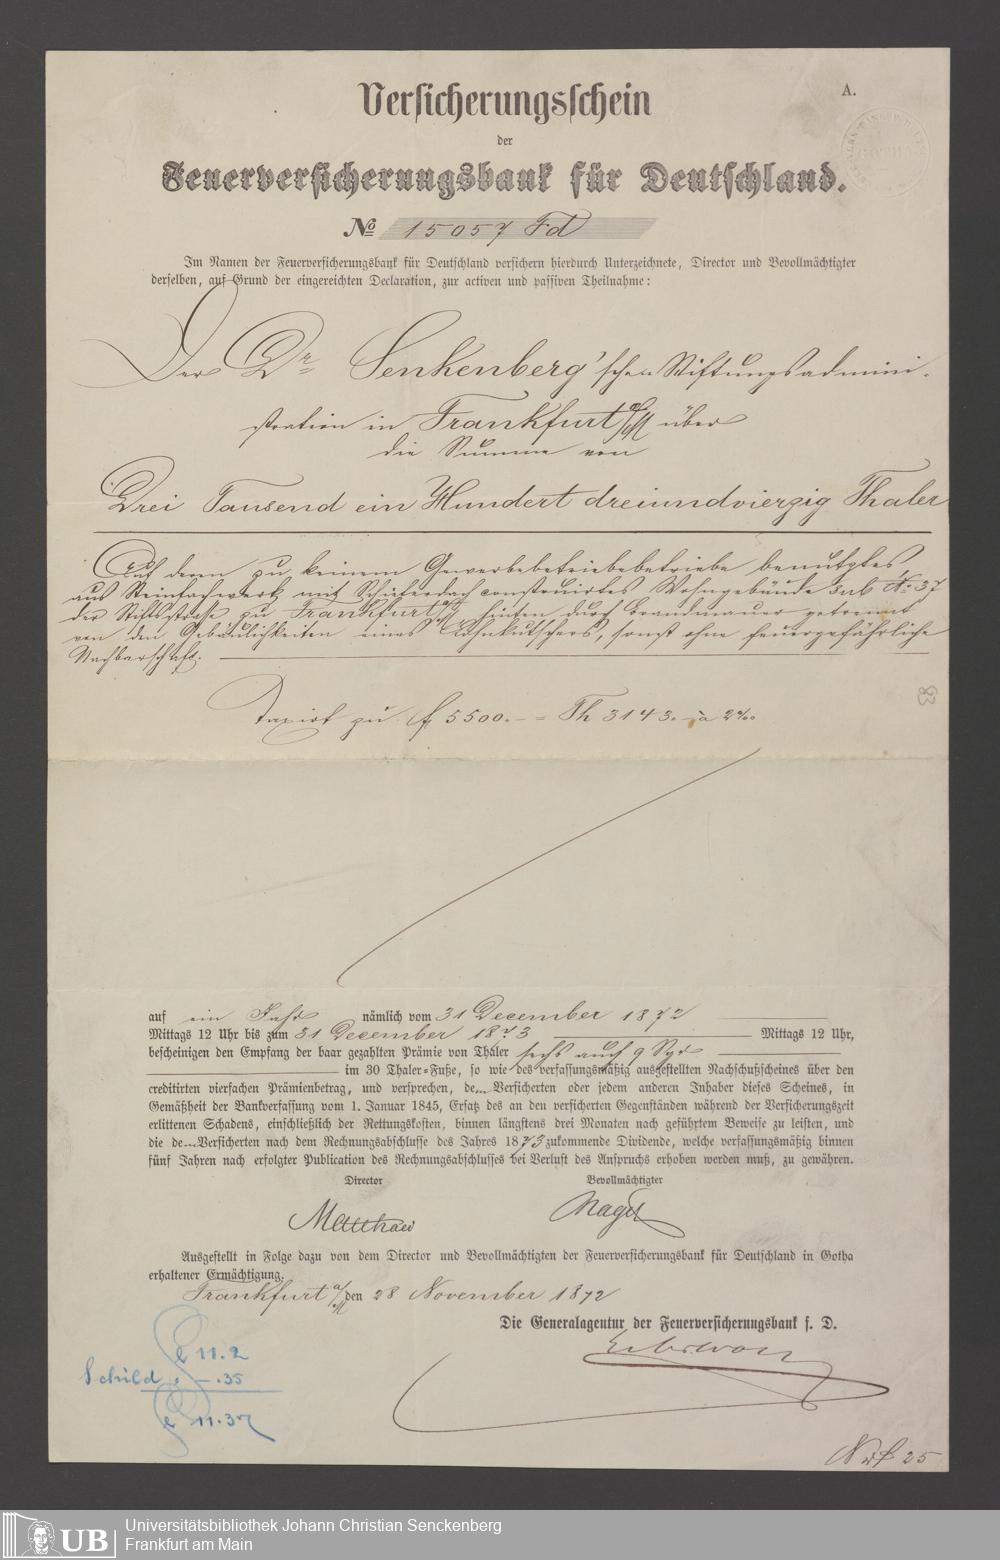 Versicherungsschein
A.
der
Feuerversicherungsbank für Deutschland.
No 15057 Fd
Im Namen der Feuerversicherungsbank für Deutschland versichern hierdurch Unterzeichnete, Director und Bevollmächtigter
derselben, auf Grund der eingereichten Declaration, zur activen und passiven Theilnahme:
Der Dr Senkenberg'schen Stiftungsadmini-
stration in Frankfurt a/M über
die Summe von
Drei Tausend ein Hundert dreiundvierzig Thaler
Auf deren zu keinem Gewerbebetriebebetriebe benutztes,
aus Steinfachwerk mit Schieferdach construirtes Wohngebäude sub No 37
der Stiftstrasse zu Frankfurt a/M, hinten durch Brandmauer getrennt
von den Gebäulichkeiten eines Lohnkutschers, sonst ohne feuergefährliche
Nachbarschaft.
Taxirt zu f 5500.- = Th 3143.- à 2‰
83
auf ein Jahr nämlich vom 31 December 1872
Mittags 12 Uhr bis zum 31 December 1873 Mittags 12 Uhr,
bescheinigen den Empfang der baar gezahlten Prämie von Thaler sechs auch 9 Sgr
im 30 Thaler-Fuße, so wie des verfassungsmäßig ausgestellten Nachschußscheines über den
creditirten vierfachen Prämienbetrag, und versprechen, de... Versicherten oder jedem anderen Inhaber dieses Scheines, in
Gemäßheit der Bankverfassung vom 1. Januar 1845, Ersatz des an den versicherten Gegenständen während der Versicherungszeit
erlittenen Schadens, einschließlich der Rettungskosten, binnen längstens drei Monaten nach geführtem Beweise zu leisten, und
die de... Versicherten nach dem Rechnungsabschlusse des Jahres 1873 zukommende Dividende, welche verfassungsmäßig binnen
fünf Jahren nach erfolgter Publication des Rechnungsabschlusses bei Verlust des Anspruchs erhoben werden muß, zu gewähren.
Director Bevollmächtigter
Matthaei Nagel
Ausgestellt in Folge dazu von dem Director und Bevollmächtigten der Feuerversicherungsbank für Deutschland in Gotha
erhaltener Ermächtigung.
Frankfurt a/M den 28 November 1872
Die Generalagentur der Feuerversicherungsbank f. D.
f 11.2
Schild " -.35
f 11.37
25
UB
Universitätsbibliothek Johann Christian Senckenberg
Frankfurt am Main